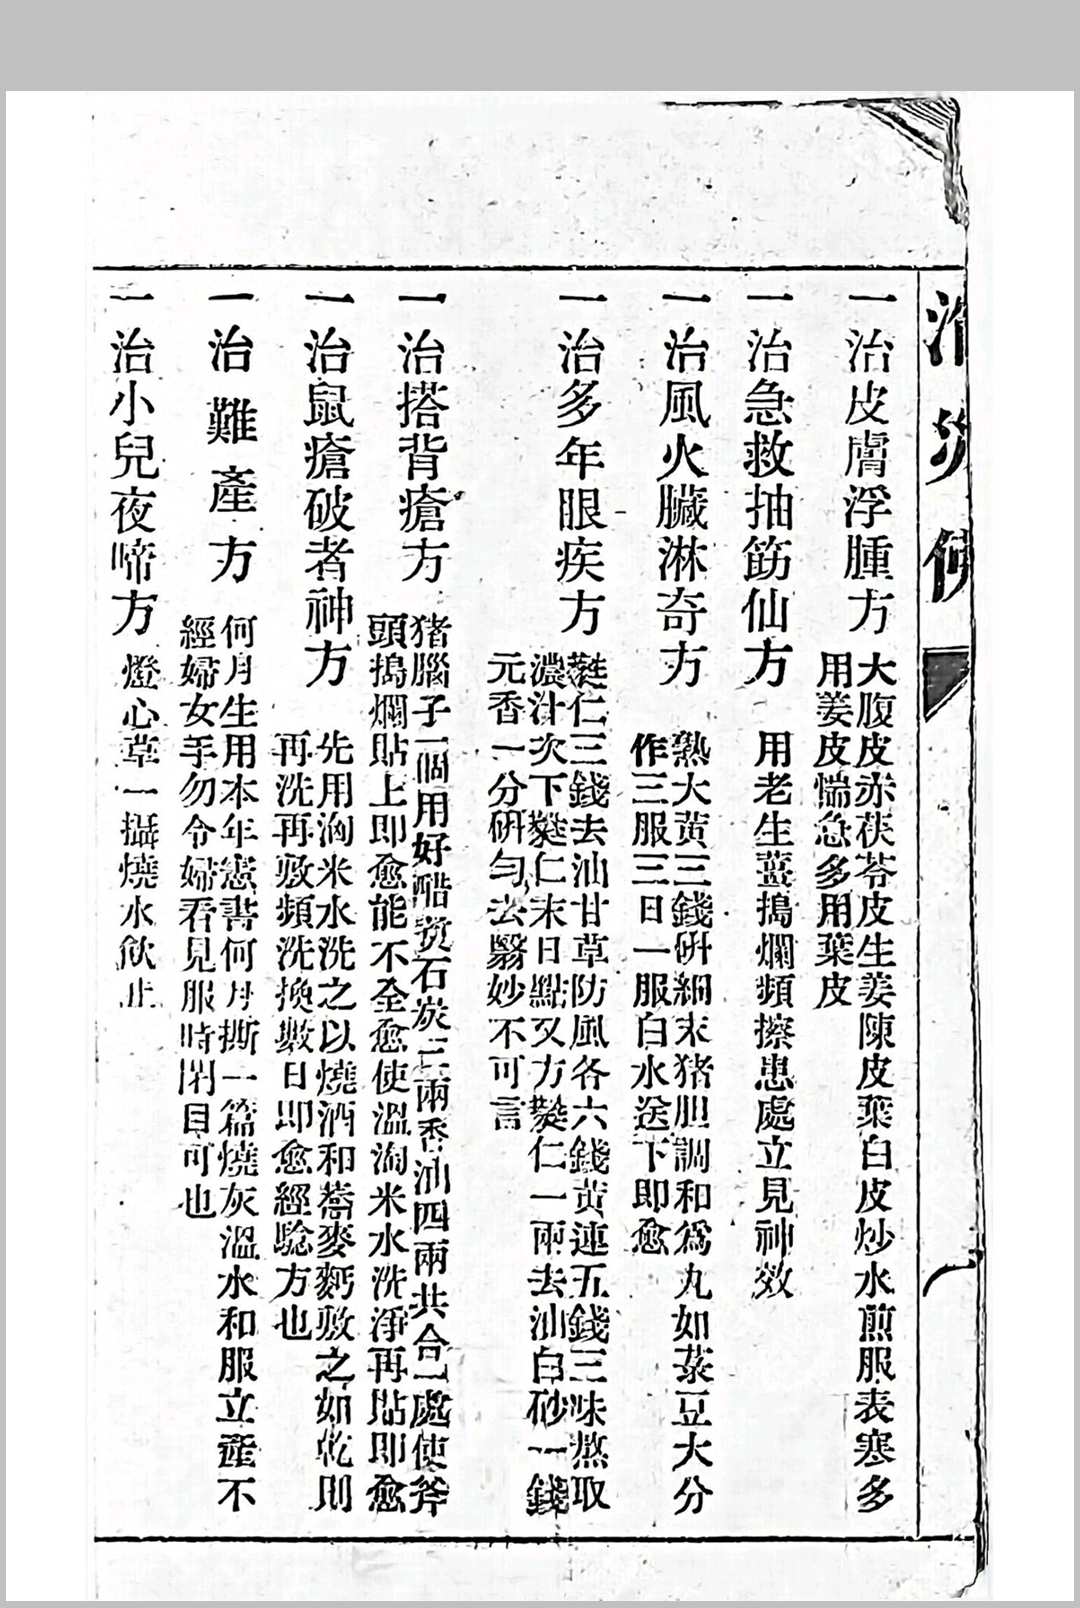 消災
一治皮膚浮腫方
大腹皮赤茯苓皮生姜陳皮葉白皮炒水煎服表寒多
用姜皮惴急多用葉皮
一治急救抽筋仙方
用老生薑搗爛頻擦患處立見神效
一治風火臟淋奇方
熟大黄三錢研細末猪胆調和爲丸如菉豆大分
作三服三日一服白水送下即愈
一治多年眼疾方
蕤仁三錢去油甘草防風各六錢黄連五錢三味熬取
濃汁次下蕤仁末日點又方蕤仁一兩去油白砂一錢
元香一分研勻去翳妙不可言
一治搭背瘡方
猪腦子一個用好醋煑石炭三兩香油四兩共合一處使斧
頭搗爛貼上即愈能不全愈使溫淘米水洗淨再貼即愈
一治鼠瘡破者神方
先用淘米水洗之以燒酒和蕎麥麪敷之如乾則
再洗再敷頻洗換數日即愈經驗方也
一治難產方
何月生用本年憲書何月撕一篇燒灰溫水和服立產不
經婦女手勿令婦看見服時閉目可也
一治小兒夜啼方
燈心草一撮燒水飲止